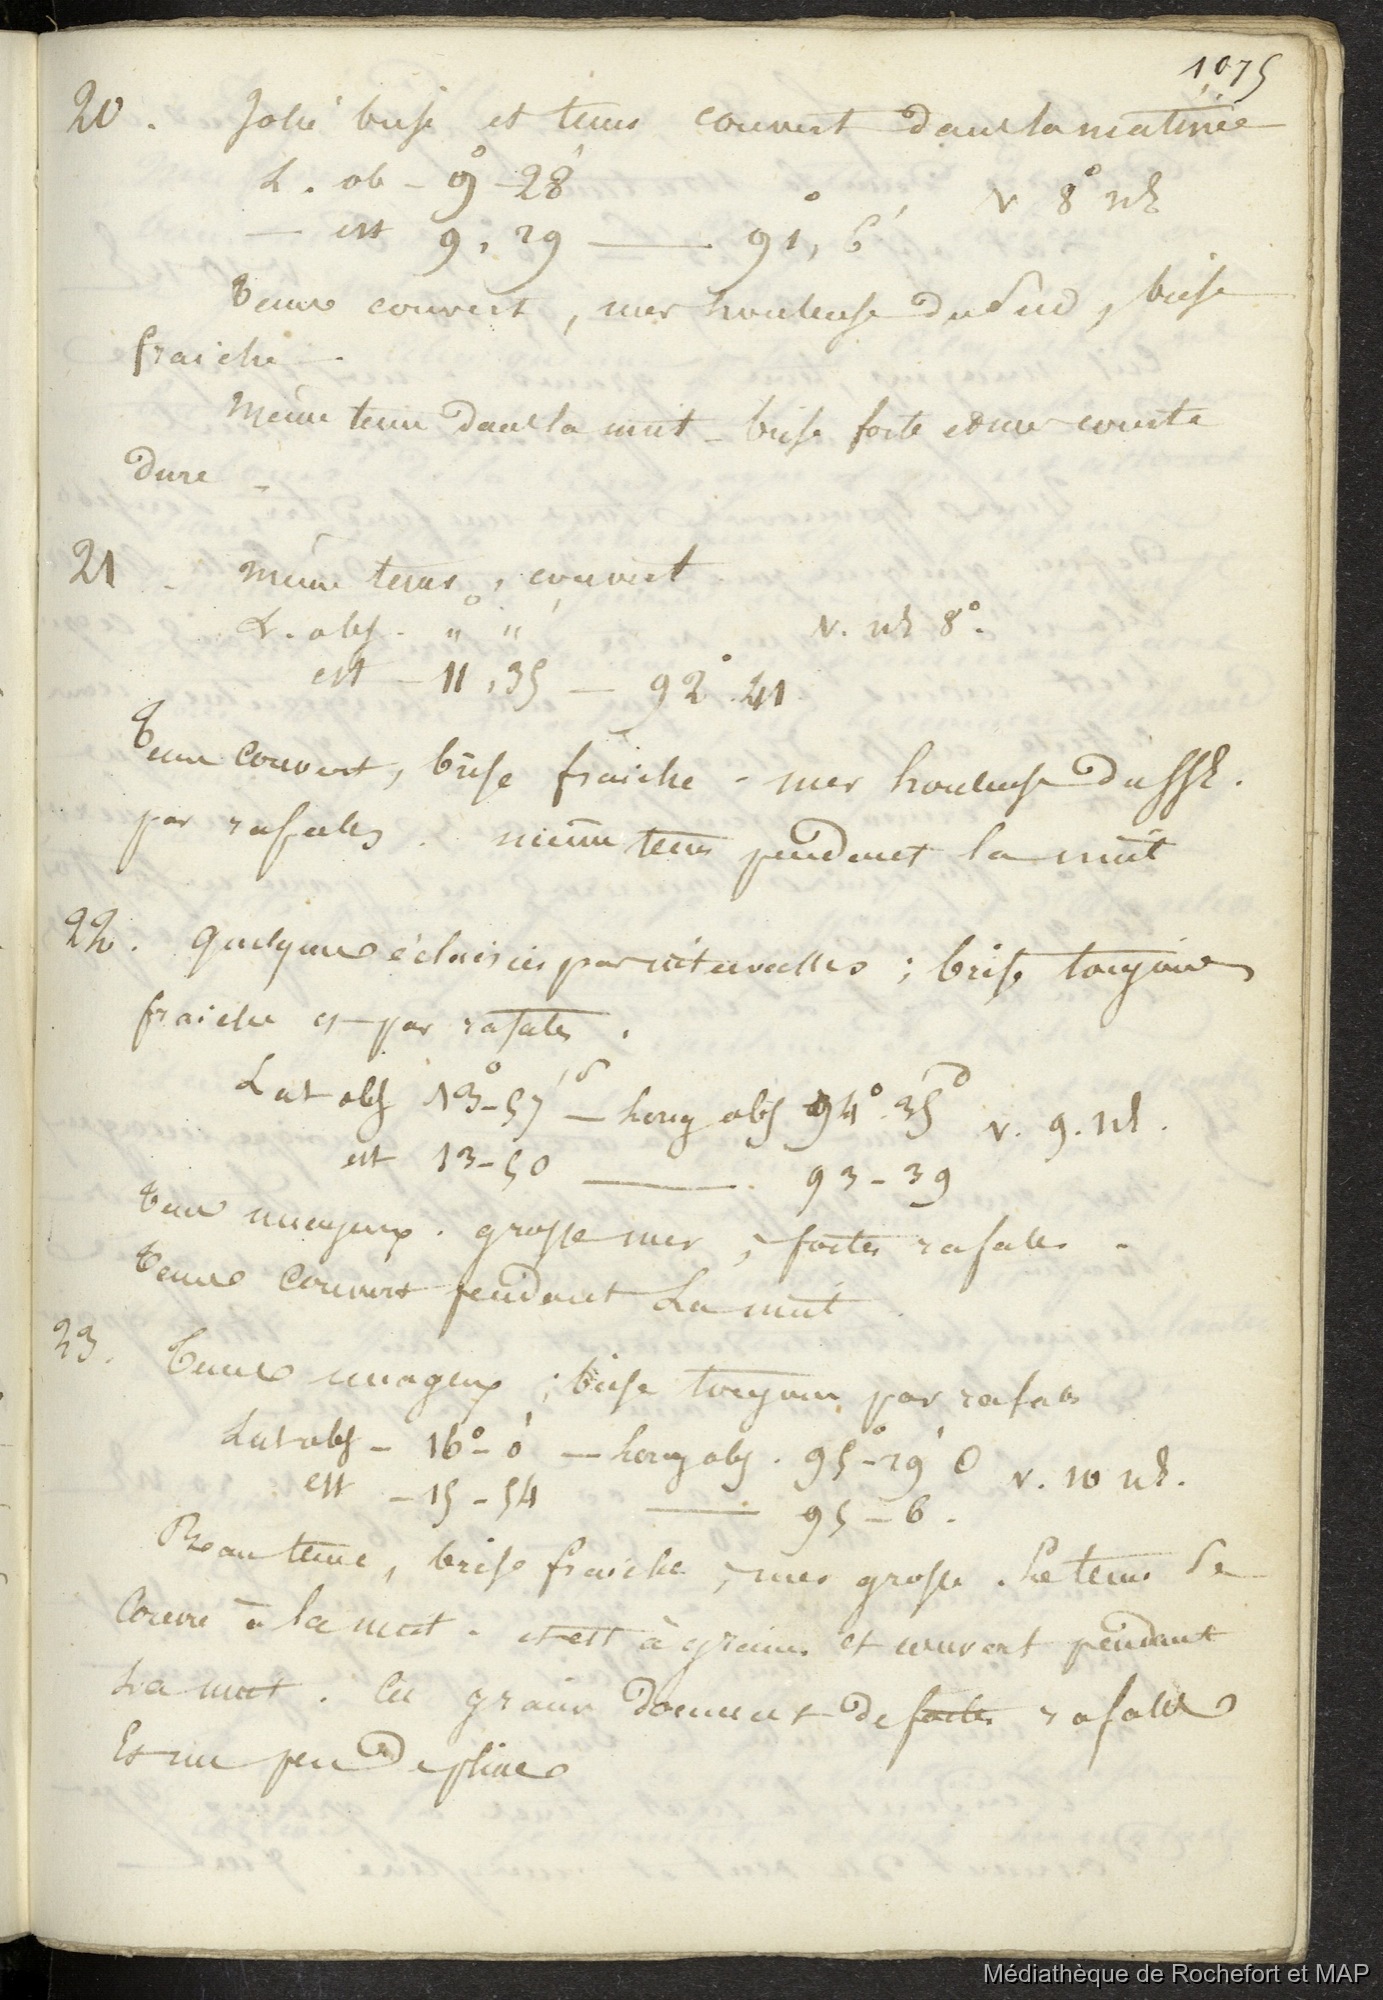 1,075
20 . Jolie brise et tems couvert dans la matinée
L . ob - 9° - 28'
v 8° NE
— est 9 , 29 — 91° , 6'
Tems couvert , mer houleuse du Sud , brise
fraiche - .
Même tems dans la nuit - brise forte et mer courte
dure -
21 - Même tems , couvert
L . obs . "° "'
v. NE 8° .
est - 11 , 35 — 92° . 41
Tems couvert , brise fraiche - mer houleuse du SSE .
par rafales . même tems pendant la nuit
22 . Quelques éclaircies par intervalles ; brise toujours
fraiche et par rafales .
Lat obs 13° - 57' S — Long obs 94° . 35' O v . 9 . NE .
est 13 - 50 — 93 - 39
Tems nuageux . grosse mer , fortes rafales -
Tems couvert pendant La nuit .
23 . Tems nuageux ; brise toujours par rafales
Lat obs - 16° - 0' — Long obs . 95° - 29' O v . 10 NE .
est - 15 - 54 — 95 - 6 .
Beau tems , brise fraiche , mer grosse . Le tems se
Couvre à la nuit - et est à grains et couvert pendant
La nuit . Ces grains donnent de fortes rafales
Et un peu de pluie
Médiathèque de Rochefort et MAP